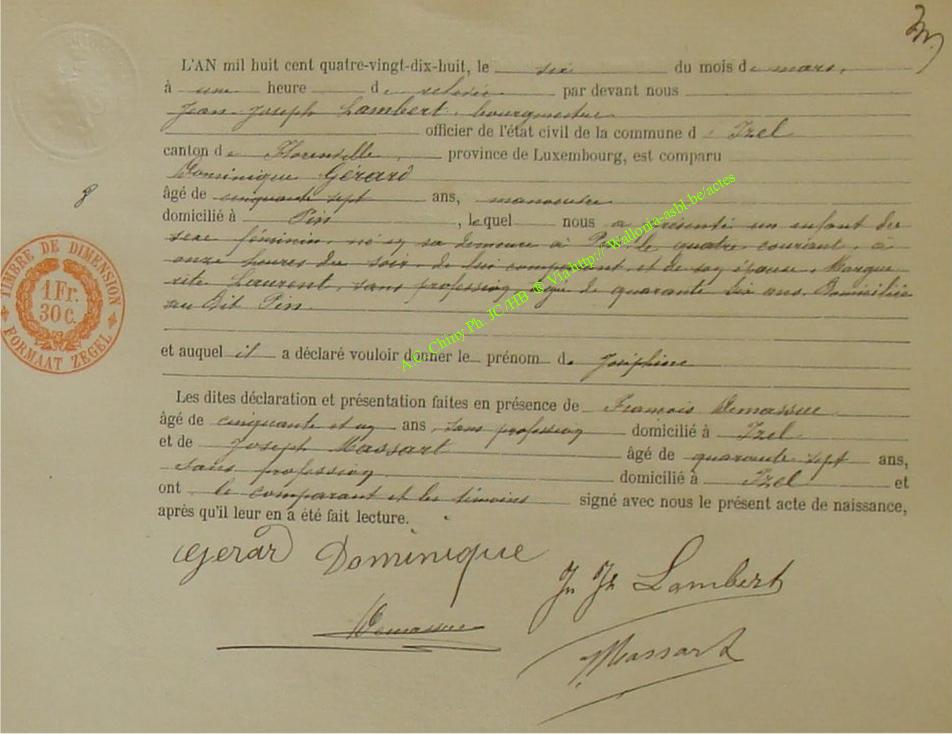 L'AN mil huit cent quatre-vingt-dix-huit, le six du mois de mars,
à une heure de relevée par devant nous
Jean Joseph Lambert, bourgmestre
officier de l'état civil de la commune d Izel
canton de Florenville, province de Luxembourg, est comparu
Dominique Gérard
âgé de cinquante sept ans, manoeuvre
8
domicilié à Pin, lequel nous a présenté un enfant du
sexe féminin, né en sa demeure à Pin le quatre courant, à
onze heures du soir, de lui comparant, et de son épouse, Margue
rite Laurent, sans profession, âgée de quarante six ans. Domiciliée
au dit Pin.
et auquel il a déclaré vouloir donner le prénom de Joséphine
Les dites déclaration et présentation faites en présence de François Demassue
âgé de cinquante et un ans, sans profession domicilié à Izel
et de Joseph Massart âgé de quarante sept ans,
sans profession domicilié à Izel et
ont le comparant et les témoins signé avec nous le présent acte de naissance,
après qu'il leur en a été fait lecture.
Gerard Dominique
Jn Jh Lambert
Demassue
Massart
TIMBRE DE DIMENSION
1 Fr.
30 c.
FORMAAT ZEGEL
Chiny Ph. JC/HB ® Via http://Wallonia-asbl.be/actes